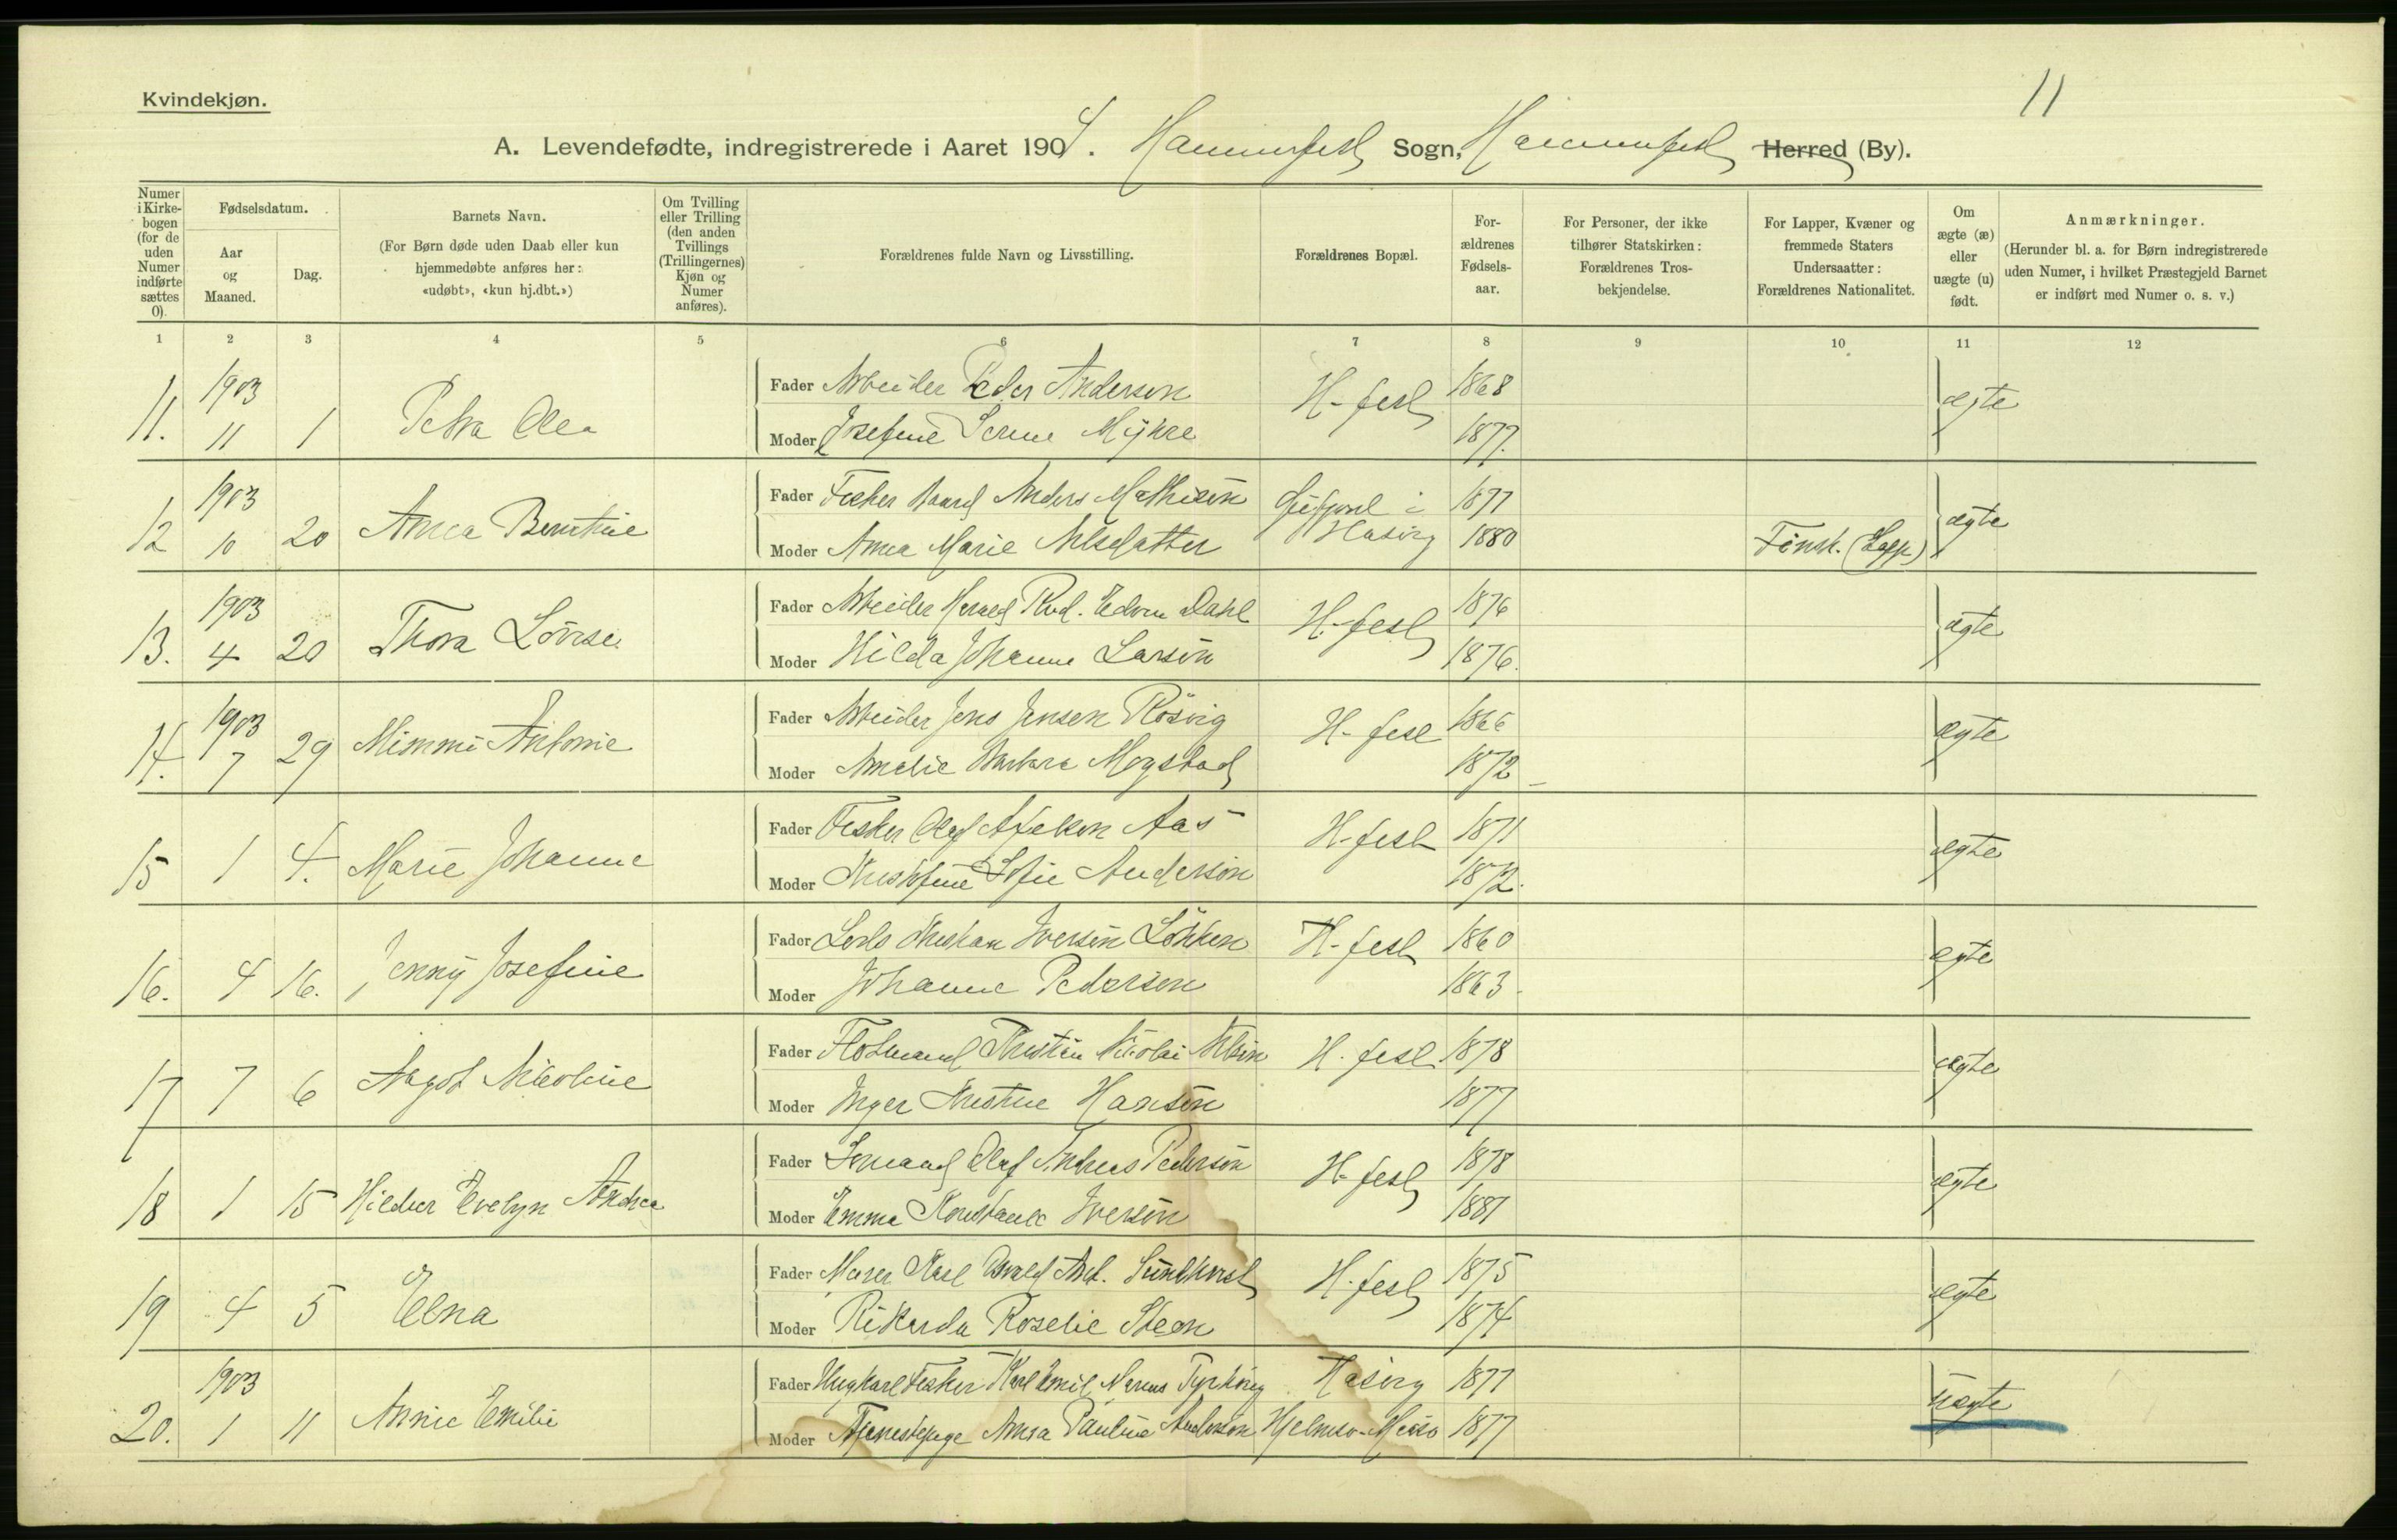 Kvindekjøn.
11
A. Levendefødte, indregistrerede i Aaret 1904. Hammerfest Sogn, Hammerfest Herred (By).
Numer i Kirkebogen (for de uden Numer indførte sættes 0).
Fødselsdatum.
Aar og Maaned.
Dag.
Barnets Navn.
(For Børn døde uden Daab eller kun hjemmedøbte anføres her: «udøbt», «kun hj.dbt.»)
Om Tvilling eller Trilling (den anden Tvillings (Trillingernes) Kjøn og Numer anføres).
Forældrenes fulde Navn og Livsstilling.
Forældrenes Bopæl.
Forældrenes Fødselsaar.
For Personer, der ikke tilhører Statskirken: Forældrenes Trosbekjendelse.
For Lapper, Kvæner og fremmede Staters Undersaatter: Forældrenes Nationalitet.
Om ægte (æ) eller uægte (u) født.
Anmærkninger.
(Herunder bl. a. for Børn indregistrerede uden Numer, i hvilket Præstegjeld Barnet er indført med Numer o. s. v.)
1 2 3 4 5 6 7 8 9 10 11 12
1903
11. 11 1 Petra Olea
Fader Arbeider Peder Andersen H-fest 1868 ægte
Moder Josefine Serine Myhre 1877.
1903
12 10 20 Anna Bernthine
Fader Fisker Anders Mathisen 1877 ægte
Moder Anna Marie Nilsdatter Hasvig 1880 Finsk. (Lapp)
1903
13. 4 20 Thora Lovise
Fader Arbeider Rud. Edvin Dahl H-fest 1876 ægte
Moder Hilda Johanne Larsen 1876.
1903
14. 7 29 Mimmi Antonie
Fader Arbeider Jens Jensen Røsvig H-fest 1866 ægte
Moder Amalie Barbara Mogstad 1872
15 1 4. Marie Johanne
Fader Fisker Olaf Aas H-fest 1871 ægte
Moder Kristofine Sofie Andersen 1872.
16. 4 16. Jenny Josefine
Fader Lods Kristian Iversen Løkken H-fest 1860 ægte
Moder Johanne Pedersen 1863.
17 7 6 Aagot Nicoline
Fader Kristen Nikolai Nilsen H.fest 1878 ægte
Moder Inger Kristine Hansen 1877
18 1 15 Hildur Evelyn Andrea
Fader Sømand Olaf Andreas Pedersen H-fest 1878 ægte
Moder Emma Konstance Iversen 1881
19 4 5 Elna
Fader Murer Karl Osvald Sundkvist H-fest 1875 ægte
Moder Rikarda Roselie Steen 1874
1903
20. 1 11 Annie Emilie
Fader Ungkarl Fisker Karl Emil Hasvig 1877 uægte
Moder Tjenestepige Anna Pauline Andersen Hjelmsø-Maasø 1877